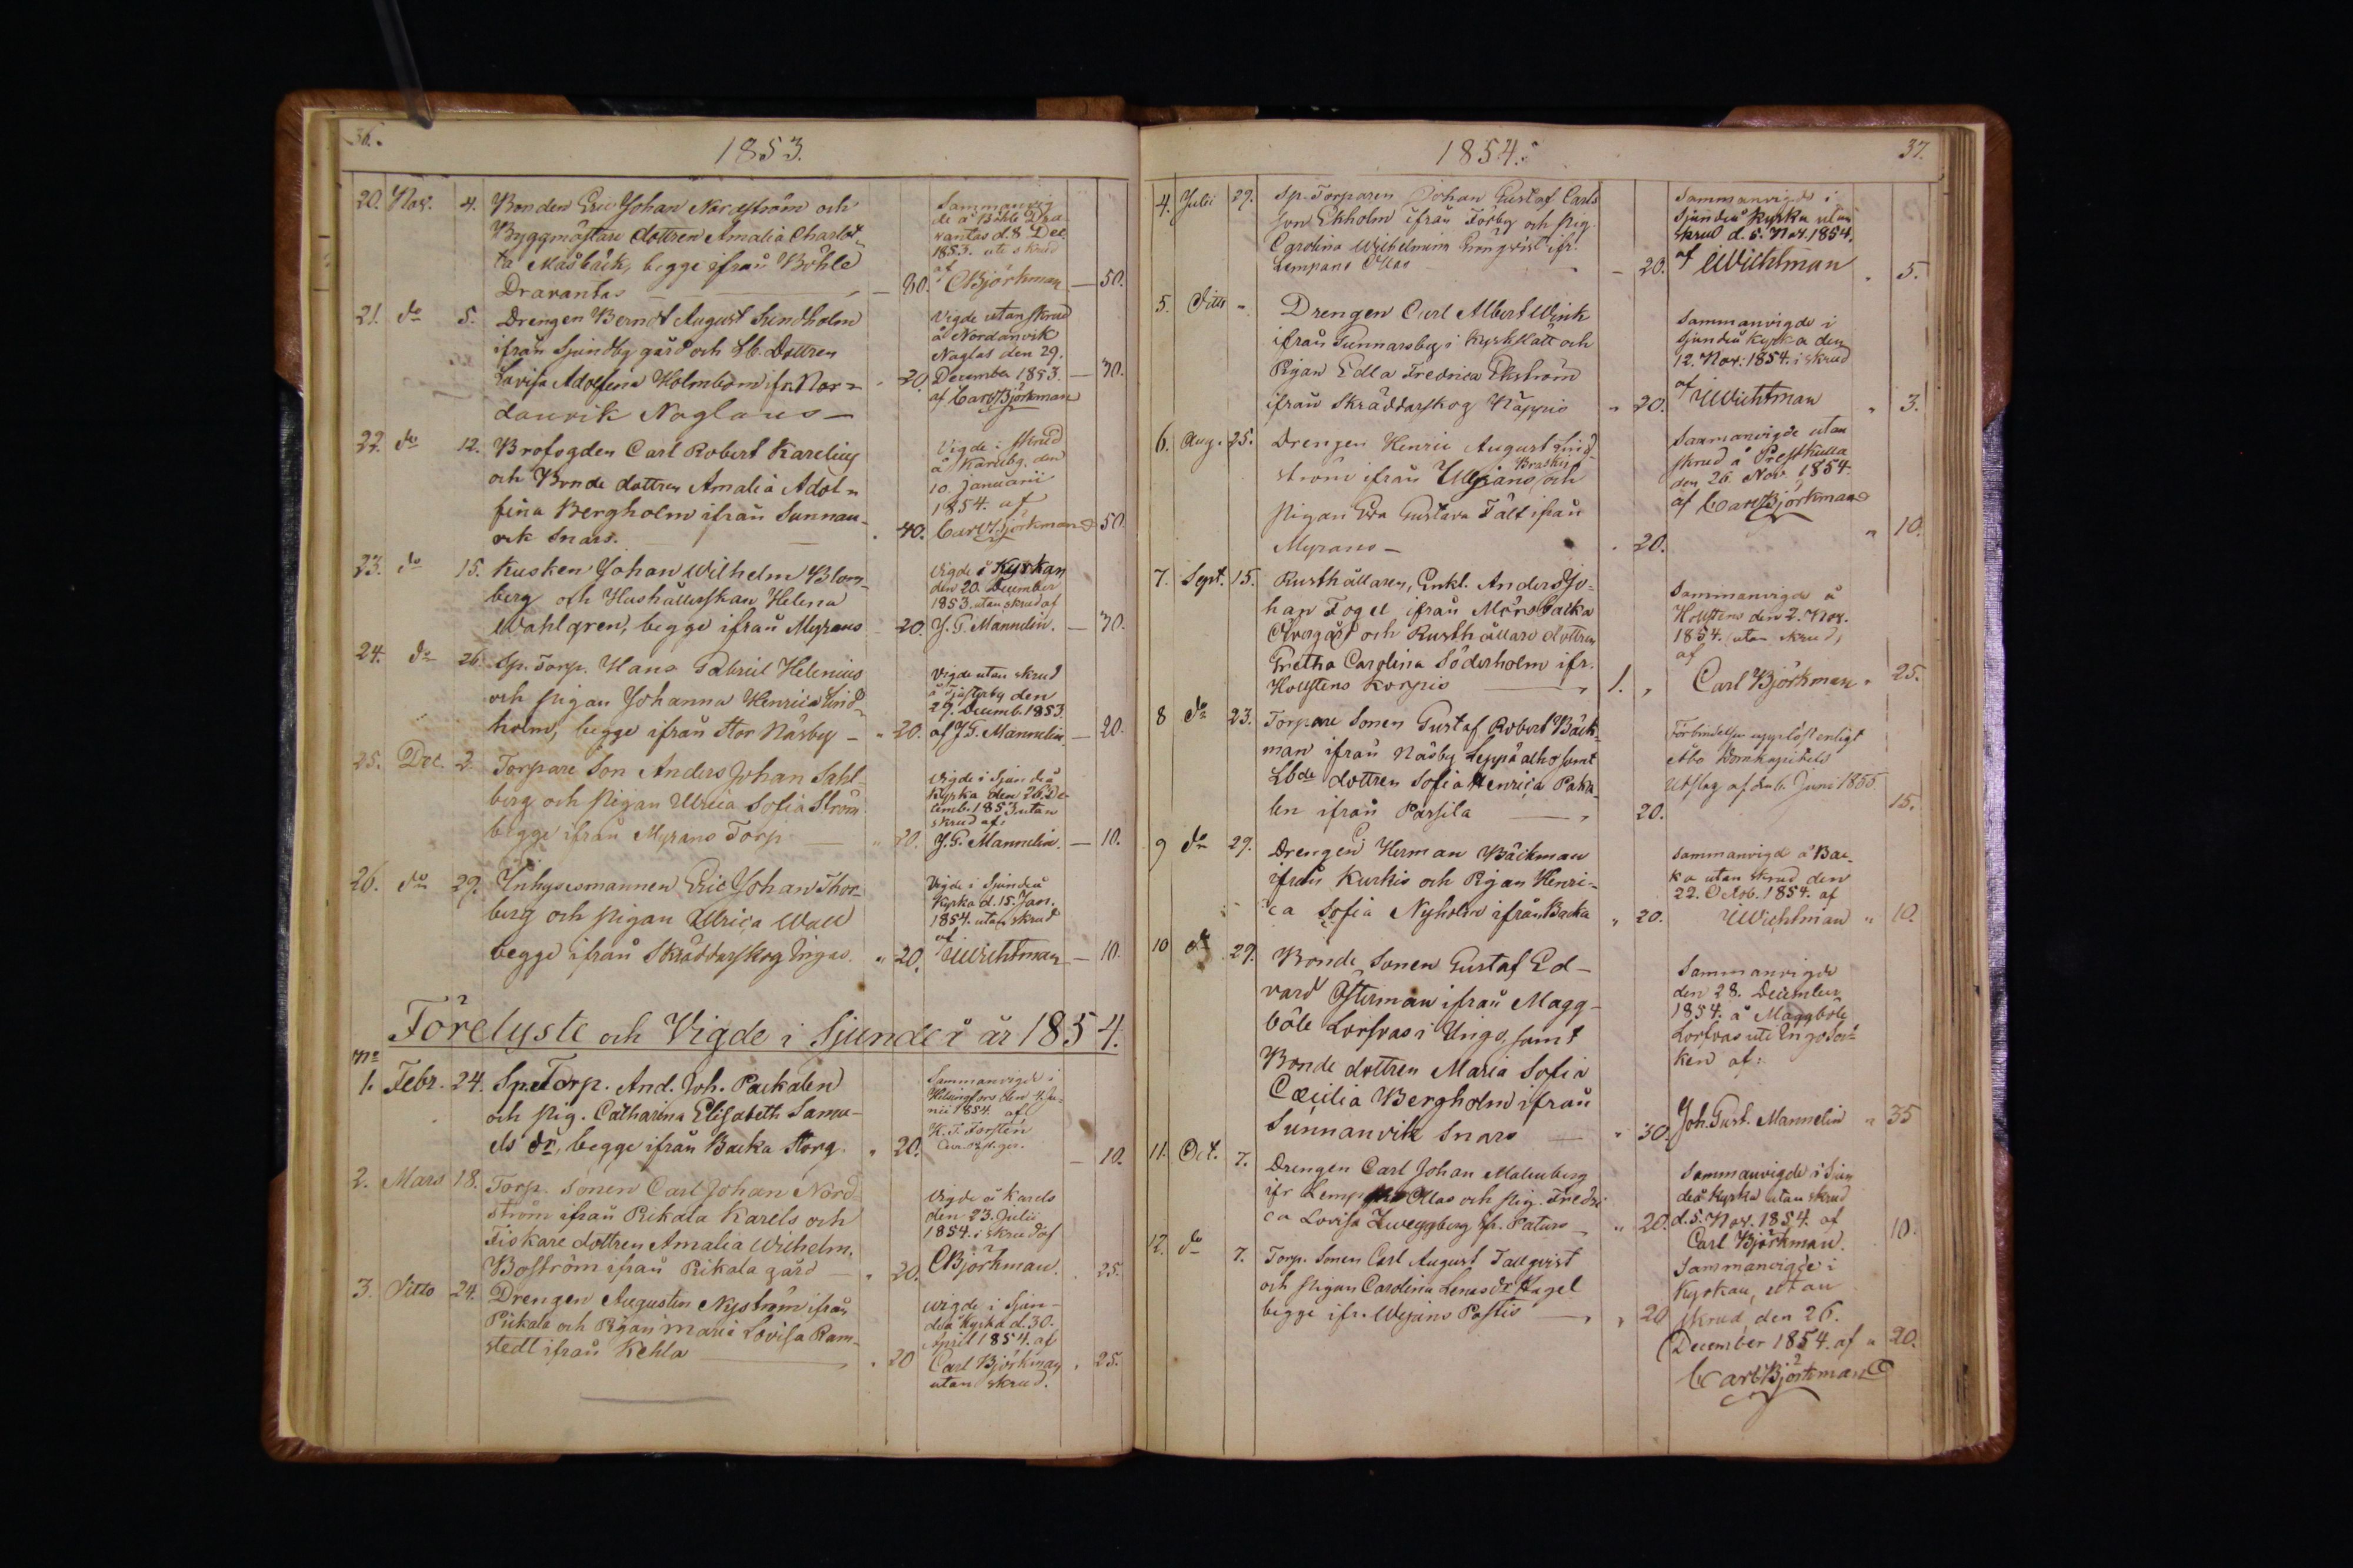 36.
1853.
20. Nov. 4. Bonden Eric Johan Nordström och
Byggmästare dottren Amalia Charlot-
ta Masbäck, begge ifrån Böhle
Dravantas — 30.
Sammanvig
de å Böhle Dra
vantas d. 8 Dec.
1853. ute skrud
af CBjörkman — 50.
21. do 5. Drengen Berndt August Sundholm
ifrån Sjundby gård och Lb. Dottren
Lovisa Adolfina Holmbom ifr. Nor-
danvik Naglans — 20.
Vigde utan skrud
å Nordanvik
Naglas den 29.
December 1853. — 30.
af Carl Björkman
22. do 12. Brofogden Carl Robert Karelius
och Bonde dottren Amalia Adol-
fina Bergholm ifrån Sunnan-
vik Snars. — 40.
Vigde i skrud
å Karuby, den
10. Januarii
1854. af
Carl Björkman 50.
23. do 15. Kusken Johan Wilhelm Blom-
berg och Hushållerskan Helena
Wahlgren, begge ifrån Myrans 20.
Vigde i Kyrkan
den 20. December
1853. utan skrud af
J. G. Mannelin. — 30.
24. do 26. Sp. Torp. Hans Gabriel Helenius
och pigan Johanna Henrica Lind-
holm, begge ifrån Stor Näsby — 20.
Vigde utan skrud
å den
27. Decemb. 1853.
af J. G. Mannelin. — 20.
25. Dec. 2. Torpare Son Anders Johan Sahl-
berg och pigan Ulrica Sofia Ström
begge ifrån Myrans Torp — 20.
Vigde i Sjundeå
Kyrka den 26. De-
cemb. 1853. utan
skrud af:
J. G. Mannelin. — 10.
26. do 29. Inhysesmannen Eric Johan Thor-
berg och pigan Ulrica Wall
begge ifrån Skräddarskog Ingas. 20.
Vigde i Sjundeå
Kyrka d. 15. Jan.
1854. utan skrud
af Wichtman — 10.
Förelyste och Vigde i Sjundeå år 1854.
No
1. Febr. 24. Spe Torp. And. Joh. Packalen
och pig. Catharina Elisabeth Samu-
els dr, begge ifrån Backa Storg. 20.
Sammanvigde i
Helsingfors den 4 Ju-
nii 1854. af
K. J. Forstén
— 10.
2. Mars 18. Torp. Sonen Carl Johan Nord-
ström ifrån Pikala Karels och
Fiskare dottren Amalia Wilhelm.
Boström ifrån Pikala gård — 20.
Vigde å Karels
den 23. Julii
1854. i skrud af
CBjörkman. 25.
3. Ditto 24. Drengen Augustin Nyström ifrån
Pickala och Pigan Maria Lovisa Ram-
stedt ifrån Kehla — 20
Vigde i Sjun-
deå Kyrka d. 30.
April 1854. af
Carl Björkman, 25.
utan skrud.
1854.
37.
4. Julii 29. Sp. Torparen Johan Gustaf Carls
son Ekholm ifrån Torby och pig.
Carolina Wilhelmina Grönqvist ifr.
Lempans Ollas — 20.
Sammanvigde i
Sjundeå Kyrka utan
skrud d. 5. Nov. 1854.
af Wichtman 5.
5. Ditto " Drengen Carl Albert Wink
ifrån Gunnarsby i Kyrkslätt och
Pigan Edla Fredrica Ekström
ifrån Skräddarskog Näppis " 20.
Sammanvigde i
Sjundeå Kyrka den
12. Nov. 1854. i skrud
af Wichtman " 3.
6. Aug. 25. Drengen Henric August Lind-
ström ifrån och
Pigan Eva Gustava Fält ifrån
Myrans — 20.
Sammanvigde utan
skrud å Prestkulla
den 26. Nov. 1854.
af Carl Björkman
" 10.
7. Sept. 15. Rusthållaren, Enkl. Anders Jo-
han Fogel ifrån Mörsbacka
Öfvergård och Rusthållare dottren
Gretha Carolina Söderholm ifr.
Hollstens Korpis — 1. "
Sammanvigde å
Hollstens den 2. Nov.
1854. utan skrud,
af
Carl Björkman " 25.
8 do 23. Torpare Sonen Gustaf Robert Bäck-
man ifrån Näsby Leppälho samt
Lbde dottren Sofia Henrica Paka-
len ifrån Parsila — 20.
Förbindelsen upplöst enligt
Åbo Domkapitels
Utslag af den 6. Juni 1855.
15.
9 do 29. Drengen Herman Bäckman
ifrån Kurkis och Pigan Henri-
ca Sofia Nyholm ifrån Backa " 20.
Sammanvigde å Bac-
ka utan skrud den
22. Octob. 1854. af
Wichtman " 10.
10 do 29. Bonde Sonen Gustaf Ed-
vard Österman ifrån Magg-
böle Lorsvas i Ingo, samt
Bonde dottren Maria Sofia
Cæcilia Bergholm ifrån
Sunnanvik Snars — " 30.
Sammanvigde
den 28. December
1854. å Maggböle
Lorsvas uti Ingo Soc-
ken af:
Joh. Gust. Mannelin " 35
11. Oct. 7. Drengen Carl Johan Malmberg
ifr Lempans Ollas och pig. Fredri
ca Lovisa Zweygberg ifr. Paturs " 20.
Sammanvigde i Sjun
deå Kyrka utan skrud
d. 5. Nov. 1854. af
Carl Björkman. 10.
12. do 7. Torp. Sonen Carl August Tallqvist
och pigan Carolina Lenas dr Hagel
begge ifr. Wejans Pastis — 20
Sammanvigde i
Kyrkan, utan
skrud, den 26.
December 1854. af " 20.
Carl Björkman